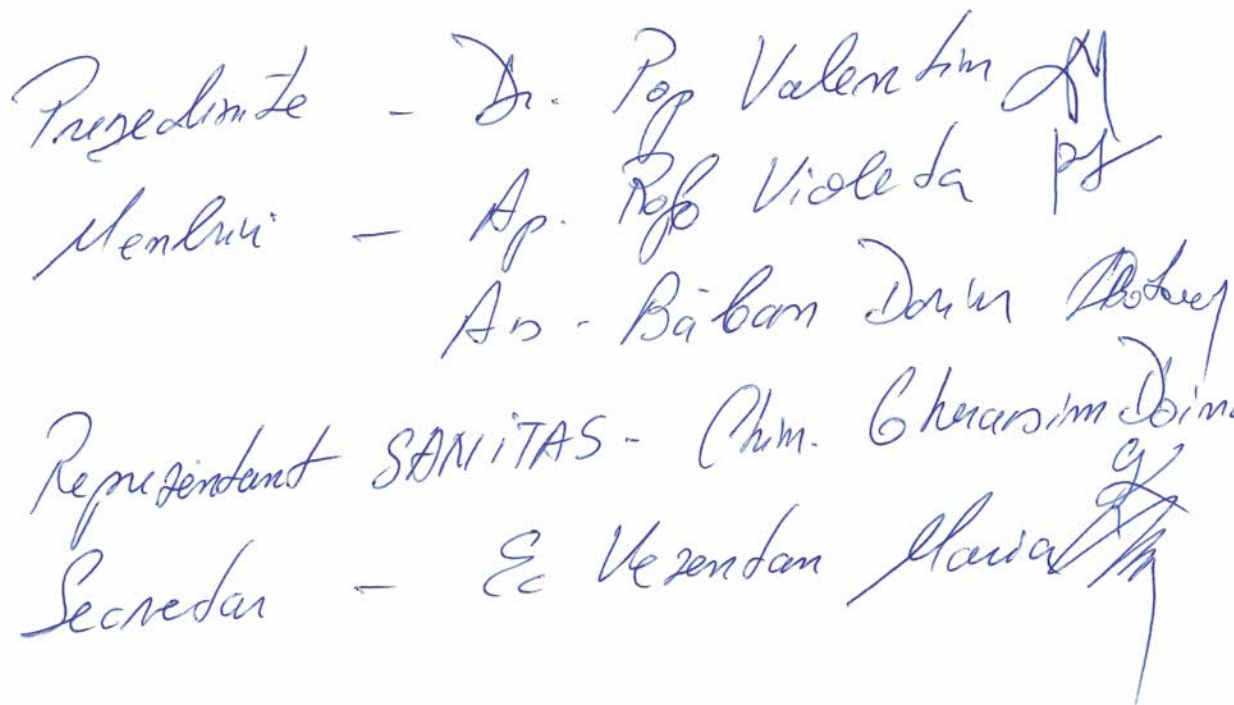 Președinte - Dr. Pop Valentin
Membrii - Ap. Violeta
As - Băban Dorin
Reprezentant SANITAS - Chim. Gherasim Doina
Secretar - Ec Vezentan Maria